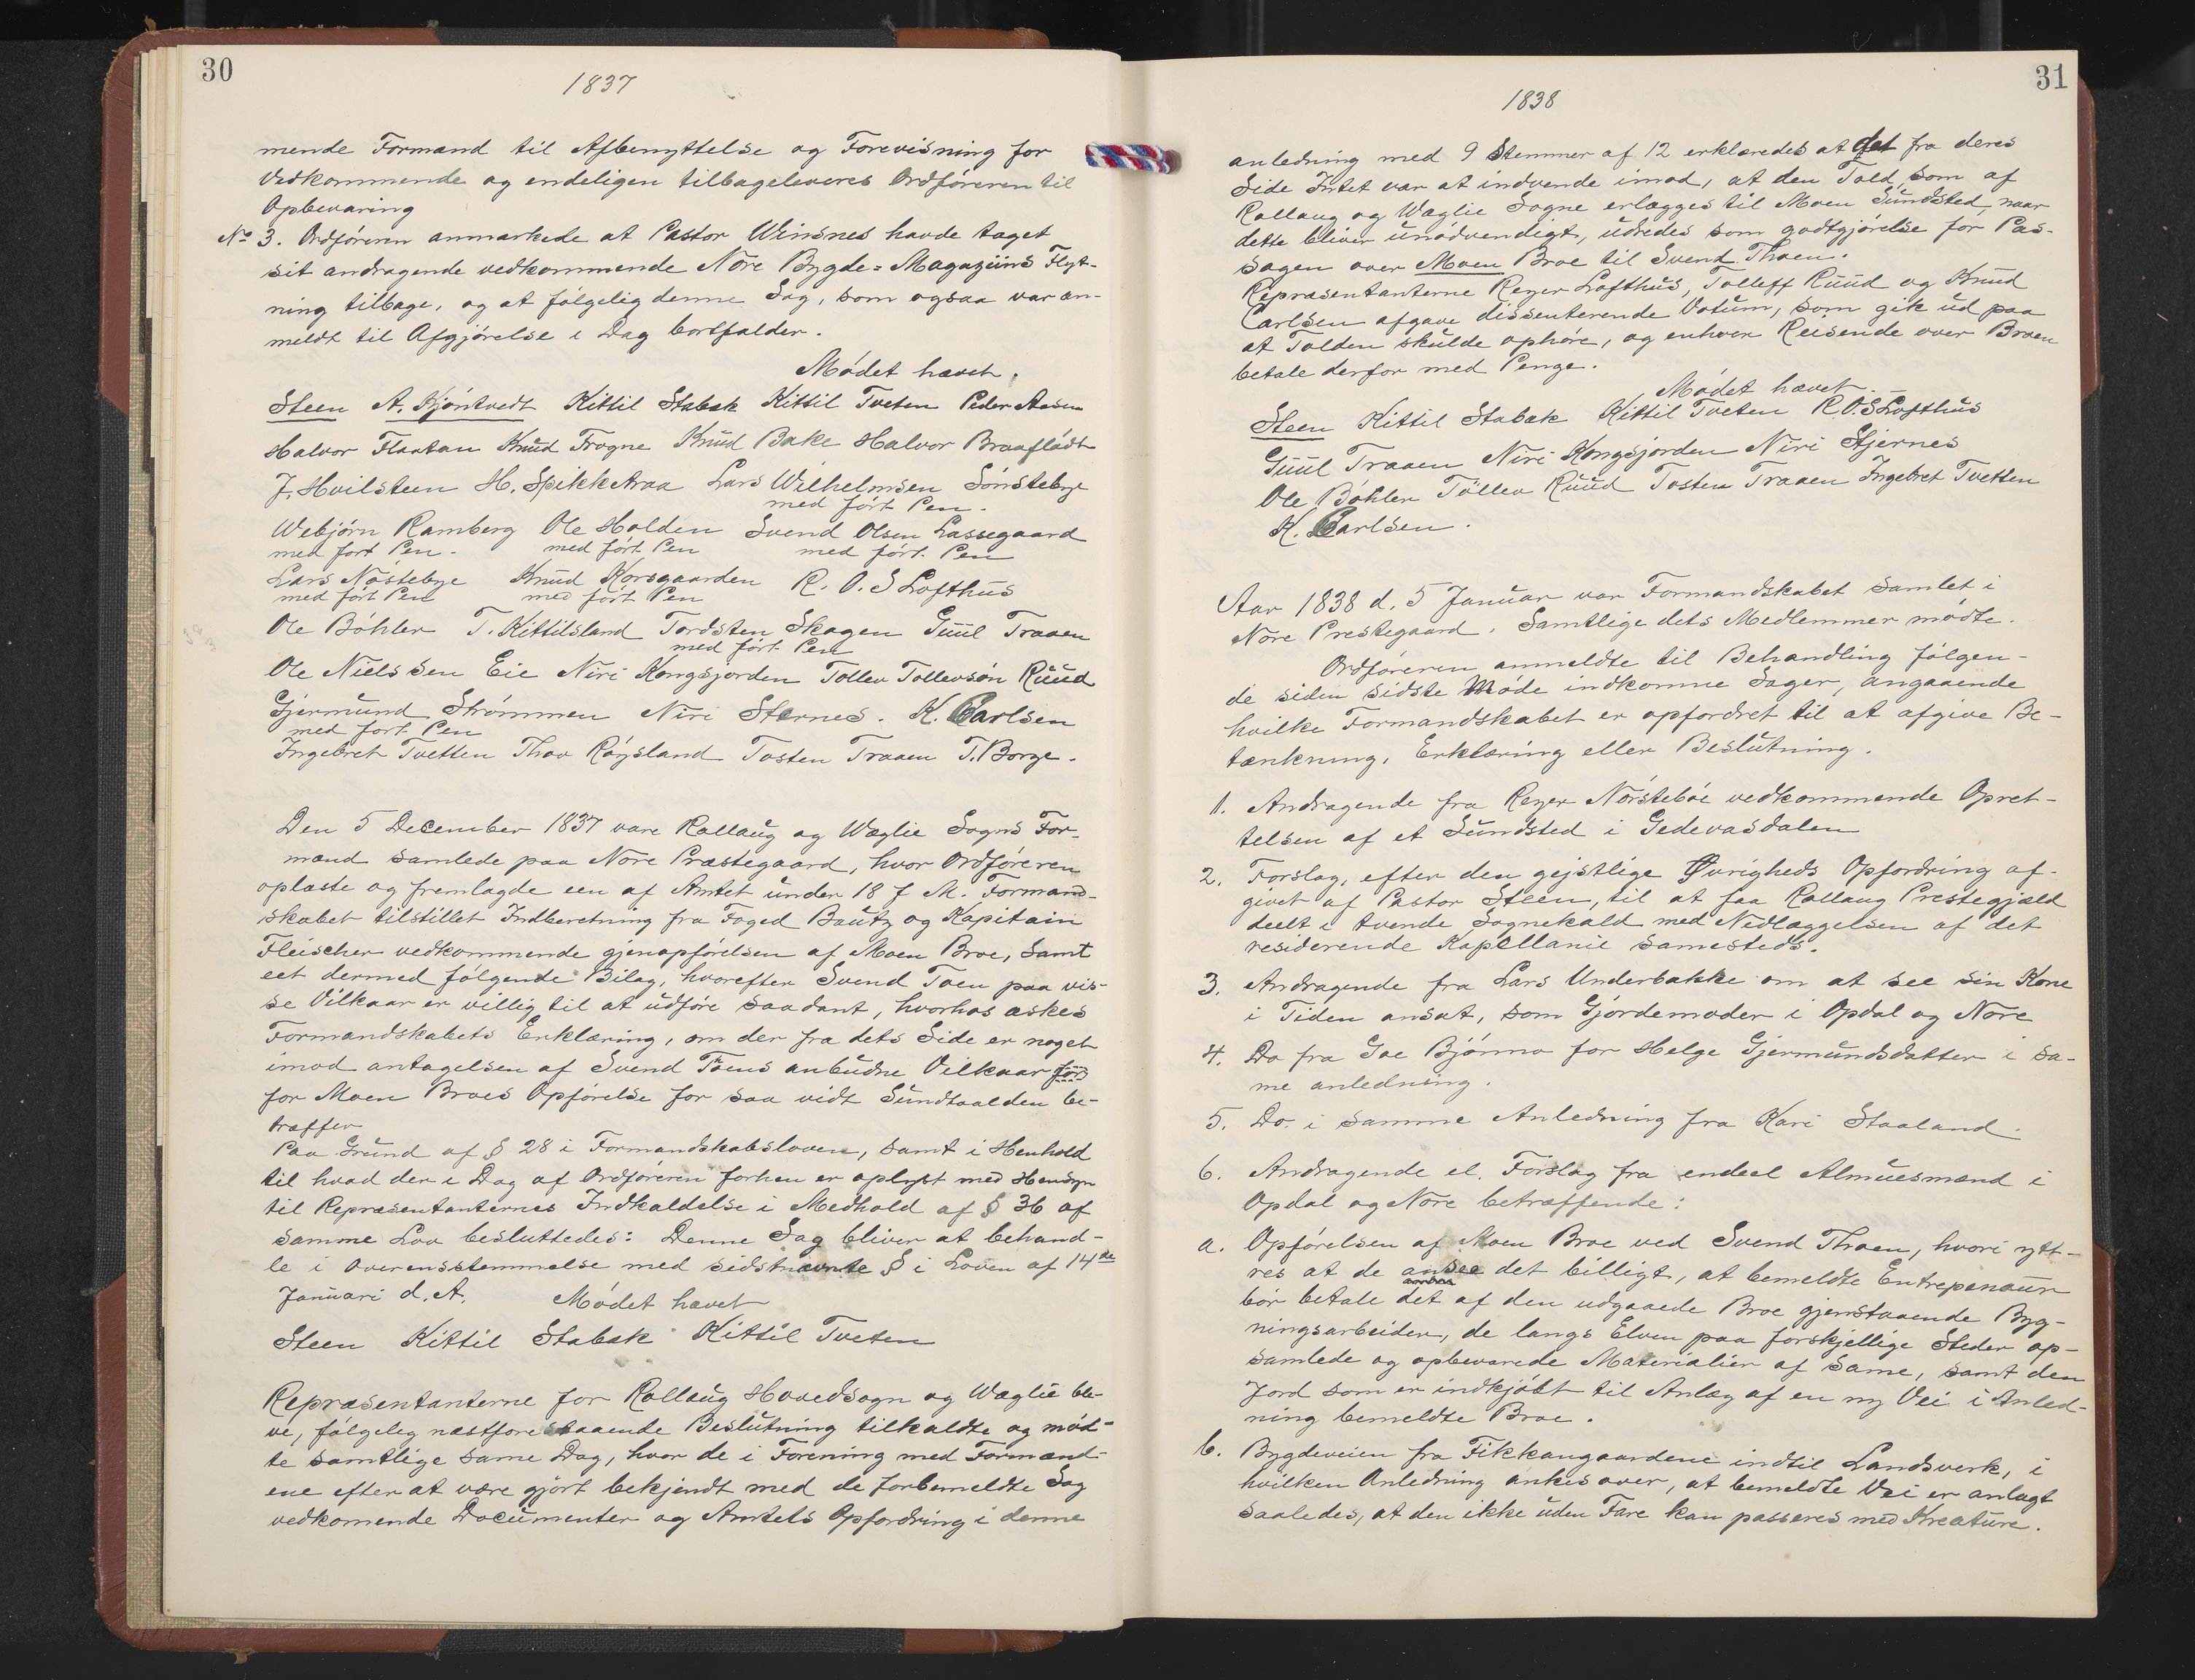 30
1837
mende Formand til Afbenyttelse og Forevisning for
Vedkommende og endeligen tilbageleveres Ordföreren til
Opbevaring
No 3. Ordföreren anmærkede at Pastor Winsnes havde taget
sit andragende vedkommende Nore Bygde=Magaziins Flyt-
ning tilbage, og at fölgelig denne Sag, som ogsaa var an-
meldt til Afgjörelse i Dag bortfalder.
Mödet hævet.
Steen A. Kjöntvedt Kittil Stabæk Kittil Tveten Peder Aasen
Halvor Flaatan Knud Frogne Knud Bakke Halvor Braaflådt
J. Hvilsteen H. Spikkeraa Lars Wilhelmsen Sönstebye
med fört Pen.
Webjörn Ramberg Ole Holden Svend Olsen Lassegaard
med fört Pen. med fört Pen med fört. Pen
Lars Nöstebye Knud Korsgaarden R. O. S Lofthus
med fört Pen med fört Pen
Ole Böhler T. Kittilsland Tordsten Skagen Guul Traaen
med fört Pen
Ole Nielssen Eie Niri Kongsjorden Tollev Tollevsön Ruud
Gjermund Strömmen Niri Stærnes. K. Carlsen
med fört Pen
Ingebret Tvetten Thov Röysland Tosten Traaen T. Borge.
Den 5 December 1837 vare Rollaug og Wæglie Sogns For-
mænd samlede paa Nore Præstegaard, hvor Ordföreren
oplæste og fremlagde een af Amtet under 18 f M. Formand-
skabet tilstillet Indberetning fra Foged Bautz og Kapitain
Fleischer vedkommende gjenopförelsen af Moen Broe, samt
eet dermed fölgende Bilag, hvorefter Svend Toen paa vis-
se Vilkaar er villig til at udföre saadant, hvorhos æskes
Formandskabets Erklæring, om der fra dets Side er noget
imod antagelsen af Svend Töens anbudne Vilkaar for
for Moen Broes Opförelse for saa vidt Sundtolden be-
træffer
Paa Grund af § 28 i Formandskabsloven, samt i Henhold
til hvad der i Dag af Ordföreren forhen er oplyst med Hensyn
til Repræsentanternes Indkaldelse i Medhold af § 36 af
samme Lov besluttedes: Denne Sag bliver at behand-
le i Overensstemmelse med sidstnævnte § i Loven af 14de
Januari d. A. Mödet hævet
Steen Kittil Stabæk Kittil Tveten
Repræsentanterne for Rollaug Hovedsogn og Wæglie ble-
ve, fölgelig næstforestaaende Beslutning tilkaldte og möd-
te samtlige same Dag, hvor de i Forening med Formænd-
ene efter at være gjört bekjendt med de forbemeldte Sag
vedkomende Documenter og Amtets Opfordring i denne
31
1838
anledning med 9 Stemmer af 12 erklæredes at det fra deres
Side Intet var at indvende imod, at den Told, som af
Rollaug og Wæglie Sogne erlægges til Moen Sundsted, naar
dette bliver unödvendigt, udredes som godtgjörelse for Pas-
sagen over Moen Broe til Svend Thoen.
Repræsentanterne Reyer Lofthus, Tolleff Ruud og Knud
Carlsen afgave dissenterende Votum, som gik ud paa
at Tolden skulde ophöre, og enhver Reisende over Broen
betale derfor med Penge.
Mödet hævet.
Steen Kittil Stabæk Kittil Tveten R. O. S Lofthus
Guul Traaen Niri Kongsjorden Niri Stjernes
Ole Böhler Töllev Ruud Tosten Traaen Ingebret Tvetten
K. Carlsen.
Aar 1838 d. 5 Januar var Formandskabet samlet i
Nore Prestegaard. Samtlige dets Medlemmer mödte.
Ordföreren anmeldte til Behandling fölgen-
de siden sidste Möde indkomne Sager, angaaende
hvilke Formandskabet er opfordret til at afgive Be-
tænkning, Erklæring eller Beslutning.
1. Andragende fra Reyer Nörsteböe vedkommende Opret-
telsen af et Sundsted i Gedevasdalen
2. Forslag, efter den gejstlige Øvrigheds Opfordring af-
givet af Pastor Steen, til at faa Rollaug Prestegjæld
deelt i tvende Sognekald med Nedlæggelsen af det
residerende Kapellanie samesteds.
3. Andragende fra Lars Underbakke om at see sin Kone
i Tiden ansat, som Gjördemoder i Opdal og Nore
4. Do fra Goe Bjönno for Helge Gjermundsdatter i sa-
me anledning.
5. Do. i samme Anledning fra Kari Staaland.
6. Andragende el. Forslag fra endeel Almuesmænd i
Opdal og Nore betræffende:
a. Opförelsen af Moen Broe ved Svend Thoen, hvori ytt-
res at de ansee det billigt, at bemeldte Entrepenöur
bör betale det af den udgaaede Broe gjenstaaende Byg-
ningsarbeider, de langs Elven paa forskjellige Steder op-
samlede og opbevarede Materialier af same, samt den
Jord som er indkjöbt til Anlæg af en ny Vei i Anled-
ning bemeldte Broe.
b. Bygdeveien fra Fikkangaardene indtil Landsverk, i
hvilken Anledning ankes over, at bemeldte Vei er anlagt
saaledes, at den ikke uden Fare kan passeres med Kreature.